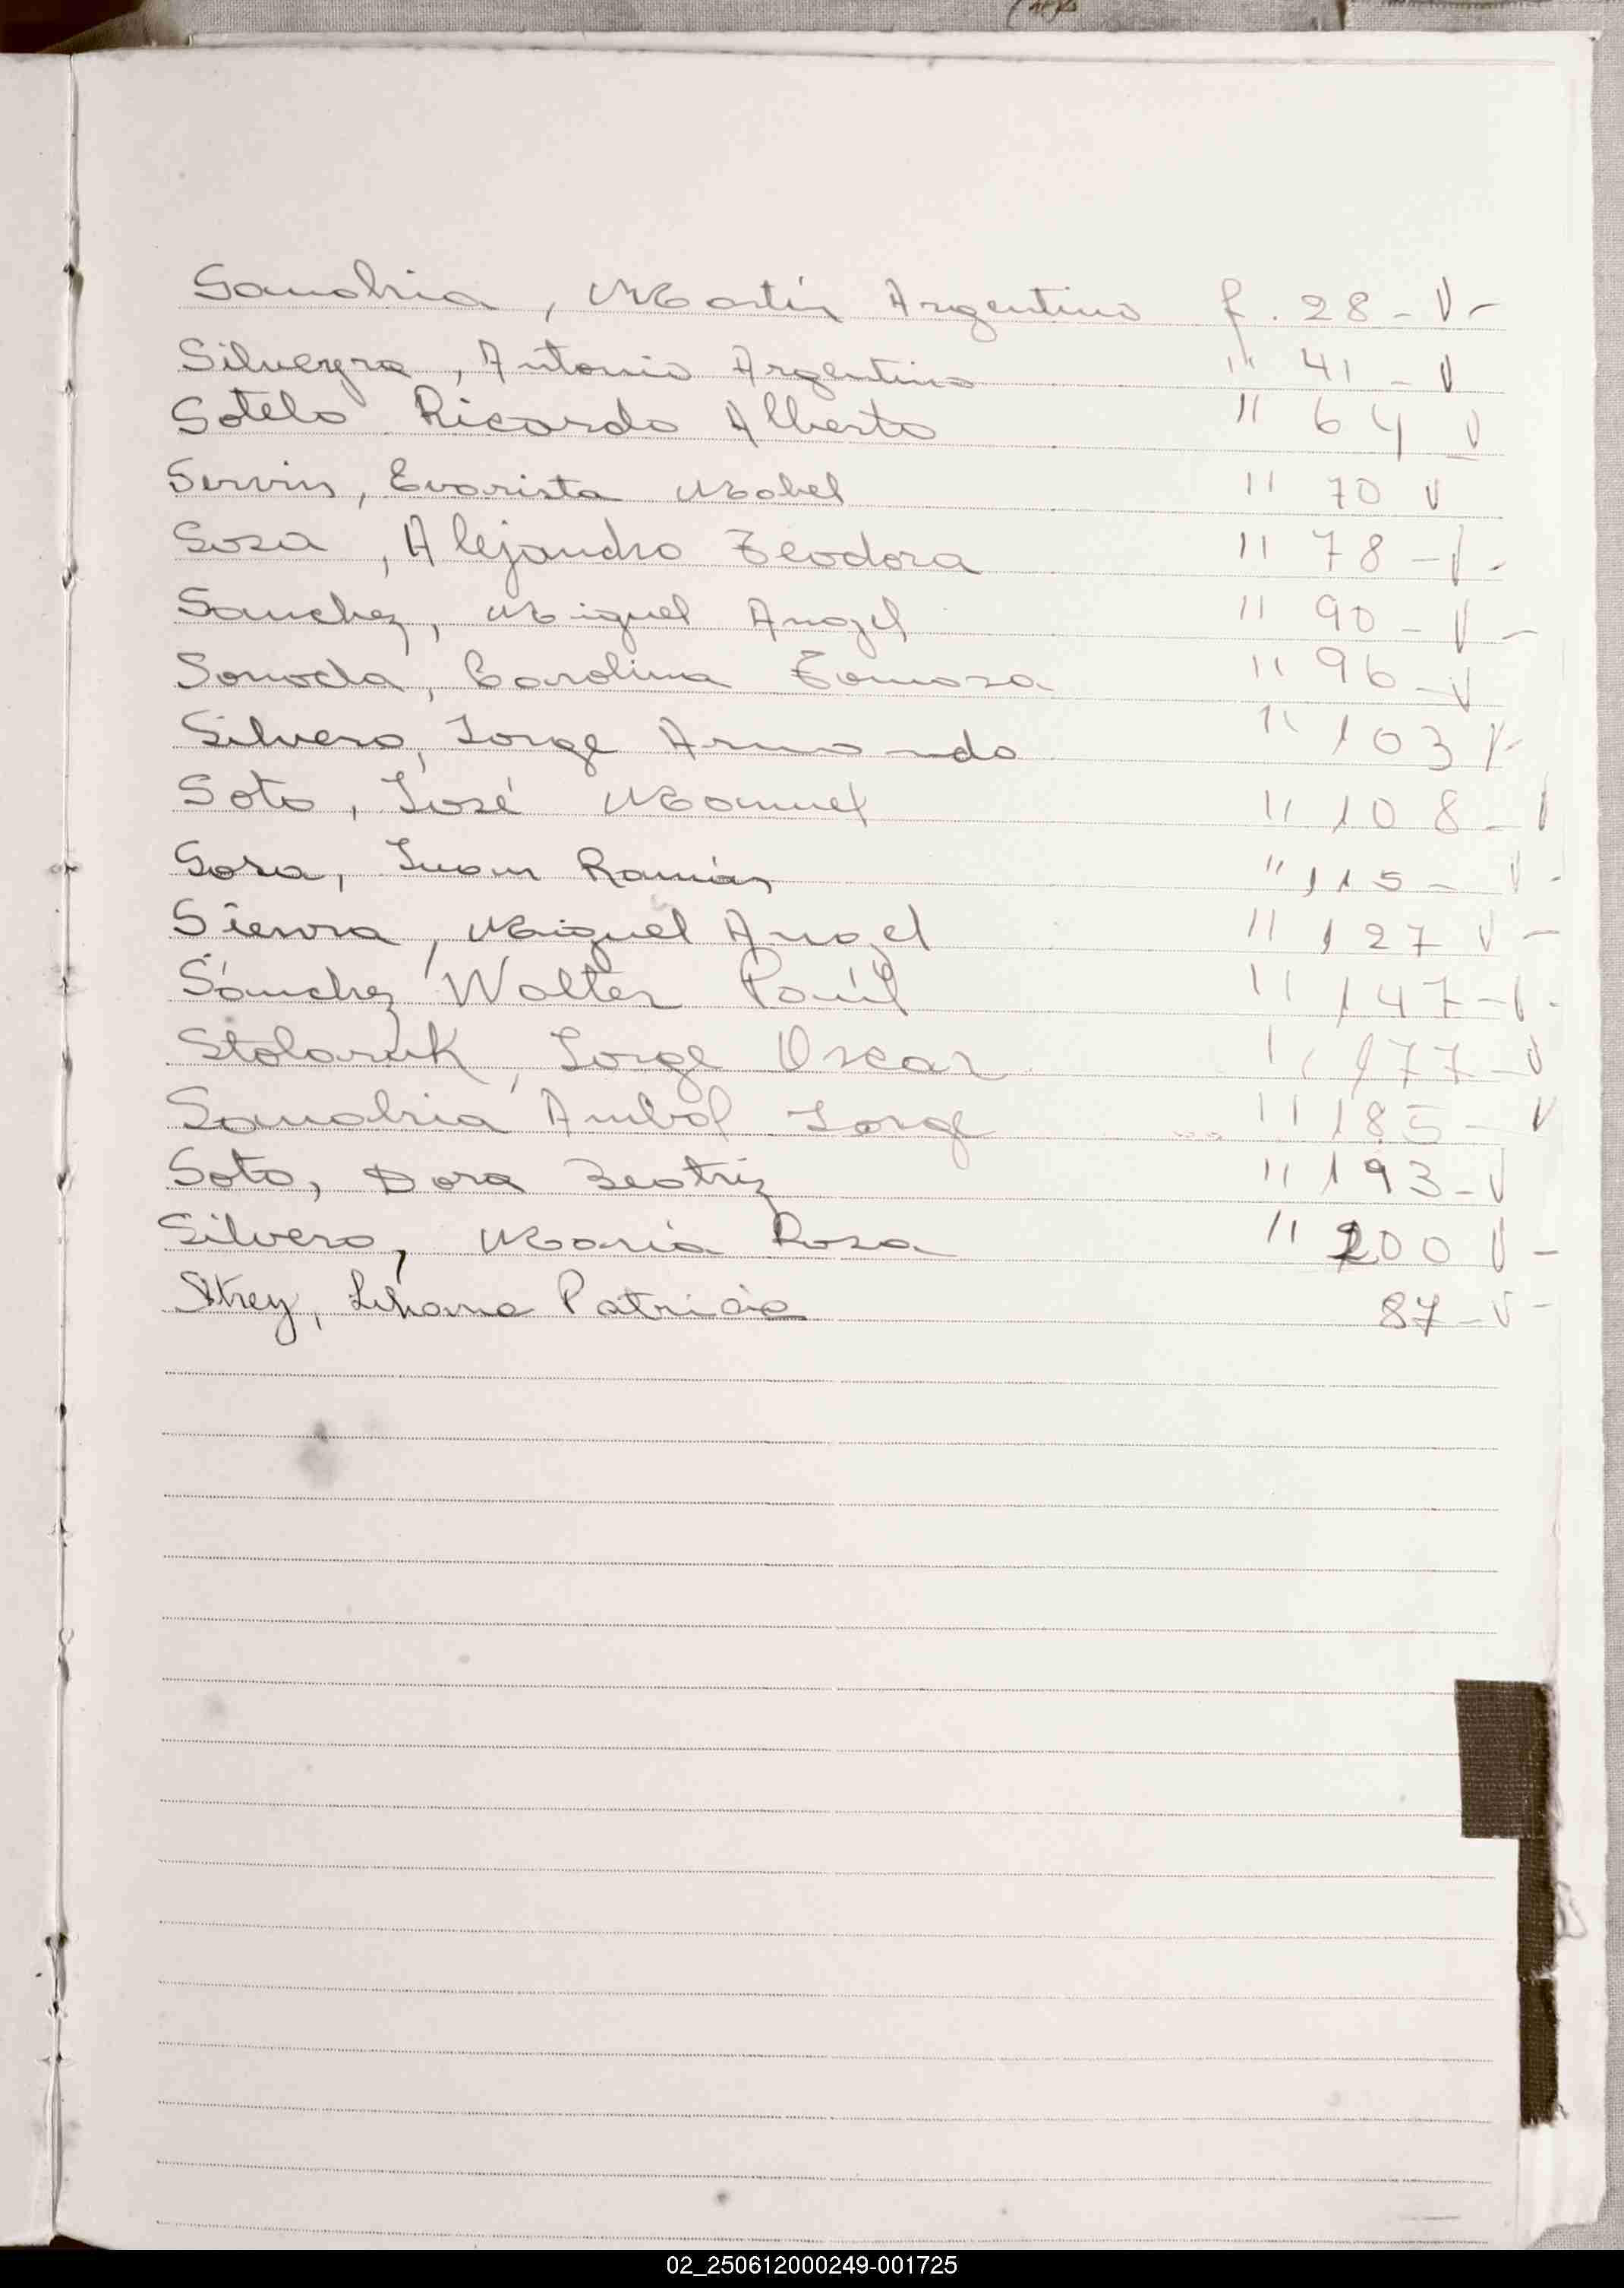 Sanabria, Martín Argentino f. 28 - V -
Silveyra, Antonio Argentino " 41 - V
Sotelo Ricardo Alberto " 64 V
Servin, Evarista Mabel " 70 V
Sosa, Alejandro Teodora " 78 - V -
Sanchez, Miguel Angel " 90 - V -
Carolina " 96 - V
Silvero, Jorge Armando " 103 V -
Soto, José Manuel " 108 - V
Sosa, Juan Ramán " 115 - V -
Sierra, Miguel Angel " 127 V -
Sánchez Walter Raúl " 147 - V -
Stolaruk, Jorge Oscar " 177 - V
Sanabria Anibal Jorge " 185 - V
Soto, Dora Beatriz " 193 - V
Silvero, María Rosa " 200 V -
Strey, Liliana Patricia 87 - V -
02_250612000249-001725